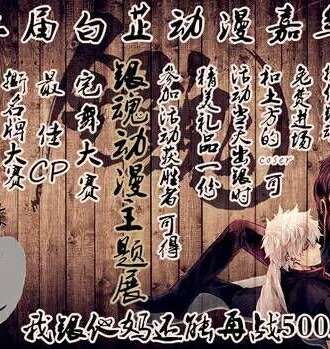 届白芷动漫嘉
撕名牌大赛
最佳CP
宅舞大赛
银魂动漫主题展
参加活动获胜者可得
精美礼品一份
活动当天出银时
和土方的coser可
免费进场
我银他妈还能再战500